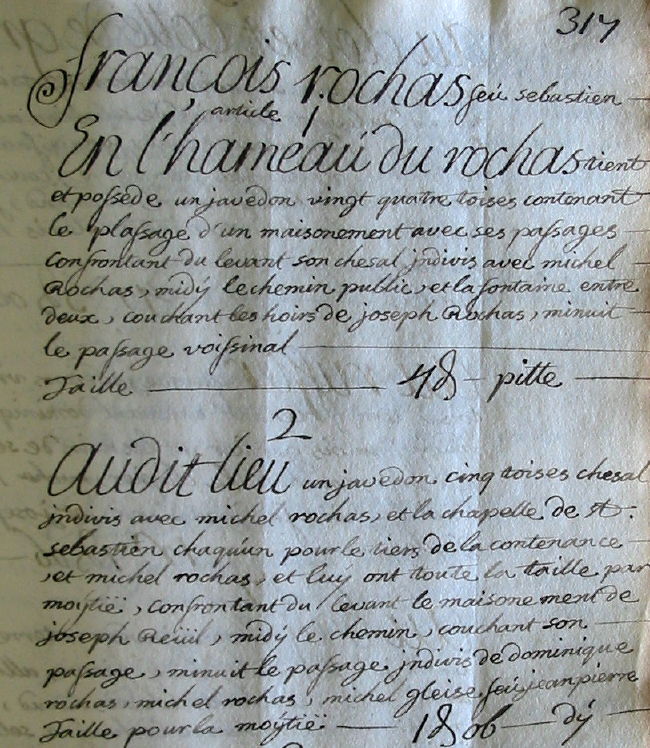 317
françois rochas feu sebastien
article 1
En l'hameau du rochas tient
et possede un javedon vingt quatre toises contenant
le plassage d'un maisonement avec ses passages
confrontant du levant son chesal jndivis avec michel
Rochas, midÿ le chemin public, et la fontaine entre
deux, couchant les hoirs de joseph Rochas, minuit
le passage voissinal
Taille 4d pitte
2
Audit lieu un javedon cinq toises chesal
jndivis avec michel rochas, et la chapelle de st.
sebastien chaqu'un pour le tiers de la contenance
, et michel rochas, et luÿ ont toute la taille par
moÿtië, confrontant du levant le maisonement de
joseph midÿ le chemin, couchant son
passage, minuit le passage jndivis de dominique
rochas, michel rochas, michel gleise feu jean pierre
Taille pour la moÿtië 1d ob dÿ